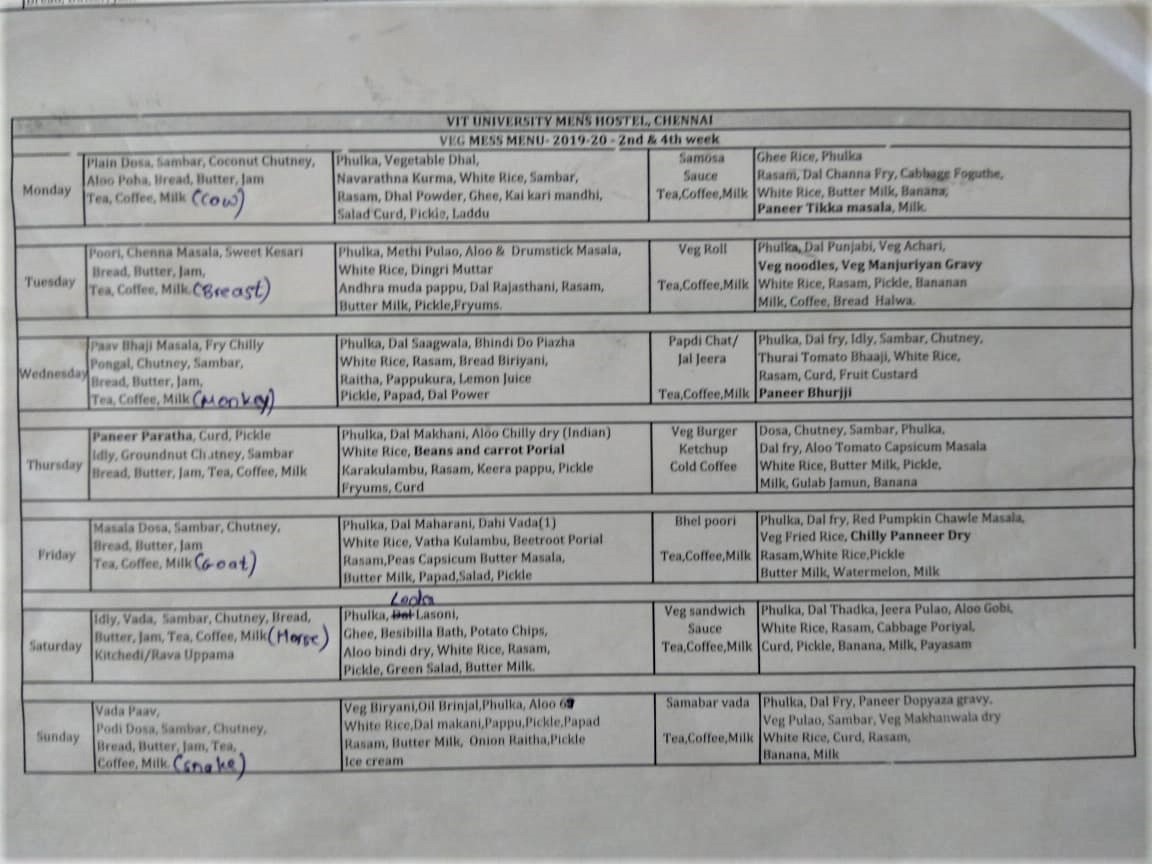 VIT UNIVERSITY MENS HOSTEL, CHENNAI
VEG MESS MENU- 2019-20 - 2nd & 4th week
Monday
Plain Dosa, Sambar, Coconut Chutney,
Aloo Poha, Bread, Butter, Jam
Tea, Coffee, Milk (cow)
Phulka, Vegetable Dhal,
Navarathna Kurma, White Rice, Sambar,
Rasam, Dhal Powder, Ghee, Kai kari mandhi,
Salad Curd, Pickle, Laddu
Samosa
Sauce
Tea,Coffee,Milk
Ghee Rice, Phulka
Rasam, Dal Channa Fry, Cabbage Foguthe,
White Rice, Butter Milk, Banana,
Paneer Tikka masala, Milk.
Tuesday
Poori, Chenna Masala, Sweet Kesari
Bread, Butter, Jam,
Tea, Coffee, Milk. (Breast)
Phulka, Methi Pulao, Aloo & Drumstick Masala,
White Rice, Dingri Muttar
Andhra muda pappu, Dal Rajasthani, Rasam,
Butter Milk, Pickle,Fryums.
Veg Roll
Tea,Coffee,Milk
Phulka, Dal Punjabi, Veg Achari,
Veg noodles, Veg Manjuriyan Gravy
White Rice, Rasam, Pickle, Bananan
Milk, Coffee, Bread Halwa.
Wednesday
Paav Bhaji Masala, Fry Chilly
Pongal, Chutney, Sambar,
Bread, Butter, Jam,
Tea, Coffee, Milk (Monkey)
Phulka, Dal Saagwala, Bhindi Do Piazha
White Rice, Rasam, Bread Biriyani,
Raitha, Pappukura, Lemon Juice
Pickle, Papad, Dal Power
Papdi Chat/
Jal Jeera
Tea,Coffee,Milk
Phulka, Dal fry, Idly, Sambar, Chutney,
Thurai Tomato Bhaaji, White Rice,
Rasam, Curd, Fruit Custard
Paneer Bhurjji
Thursday
Paneer Paratha, Curd, Pickle
Idly, Groundnut Chutney, Sambar
Bread, Butter, Jam, Tea, Coffee, Milk
Phulka, Dal Makhani, Aloo Chilly dry (Indian)
White Rice, Beans and carrot Porial
Karakulambu, Rasam, Keera pappu, Pickle
Fryums, Curd
Veg Burger
Ketchup
Cold Coffee
Dosa, Chutney, Sambar, Phulka,
Dal fry, Aloo Tomato Capsicum Masala
White Rice, Butter Milk, Pickle,
Milk, Gulab Jamun, Banana
Friday
Masala Dosa, Sambar, Chutney,
Bread, Butter, Jam
Tea, Coffee, Milk (Goat)
Phulka, Dal Maharani, Dahi Vada(1)
White Rice, Vatha Kulambu, Beetroot Porial
Rasam,Peas Capsicum Butter Masala,
Butter Milk, Papad,Salad, Pickle
Bhel poori
Tea,Coffee,Milk
Phulka, Dal fry, Red Pumpkin Chawle Masala,
Veg Fried Rice, Chilly Panneer Dry
Rasam,White Rice,Pickle
Butter Milk, Watermelon, Milk
Saturday
Idly, Vada, Sambar, Chutney, Bread,
Butter, Jam, Tea, Coffee, Milk (Horse)
Kitchedi/Rava Uppama
Phulka, Dal Lasoni,
Ghee, Besibilla Bath, Potato Chips,
Aloo bindi dry, White Rice, Rasam,
Pickle, Green Salad, Butter Milk.
Veg sandwich
Sauce
Tea,Coffee,Milk
Phulka, Dal Thadka, Jeera Pulao, Aloo Gobi,
White Rice, Rasam, Cabbage Poriyal,
Curd, Pickle, Banana, Milk, Payasam
Sunday
Vada Paav,
Podi Dosa, Sambar, Chutney,
Bread, Butter, Jam, Tea,
Coffee, Milk. (snake)
Veg Biryani,Oil Brinjal,Phulka, Aloo
White Rice,Dal makani,Pappu,Pickle,Papad
Rasam, Butter Milk, Onion Raitha,Pickle
Ice cream
Samabar vada
Tea,Coffee,Milk
Phulka, Dal Fry, Paneer Dopyaza gravy,
Veg Pulao, Sambar, Veg Makhanwala dry
White Rice, Curd, Rasam,
Banana, Milk